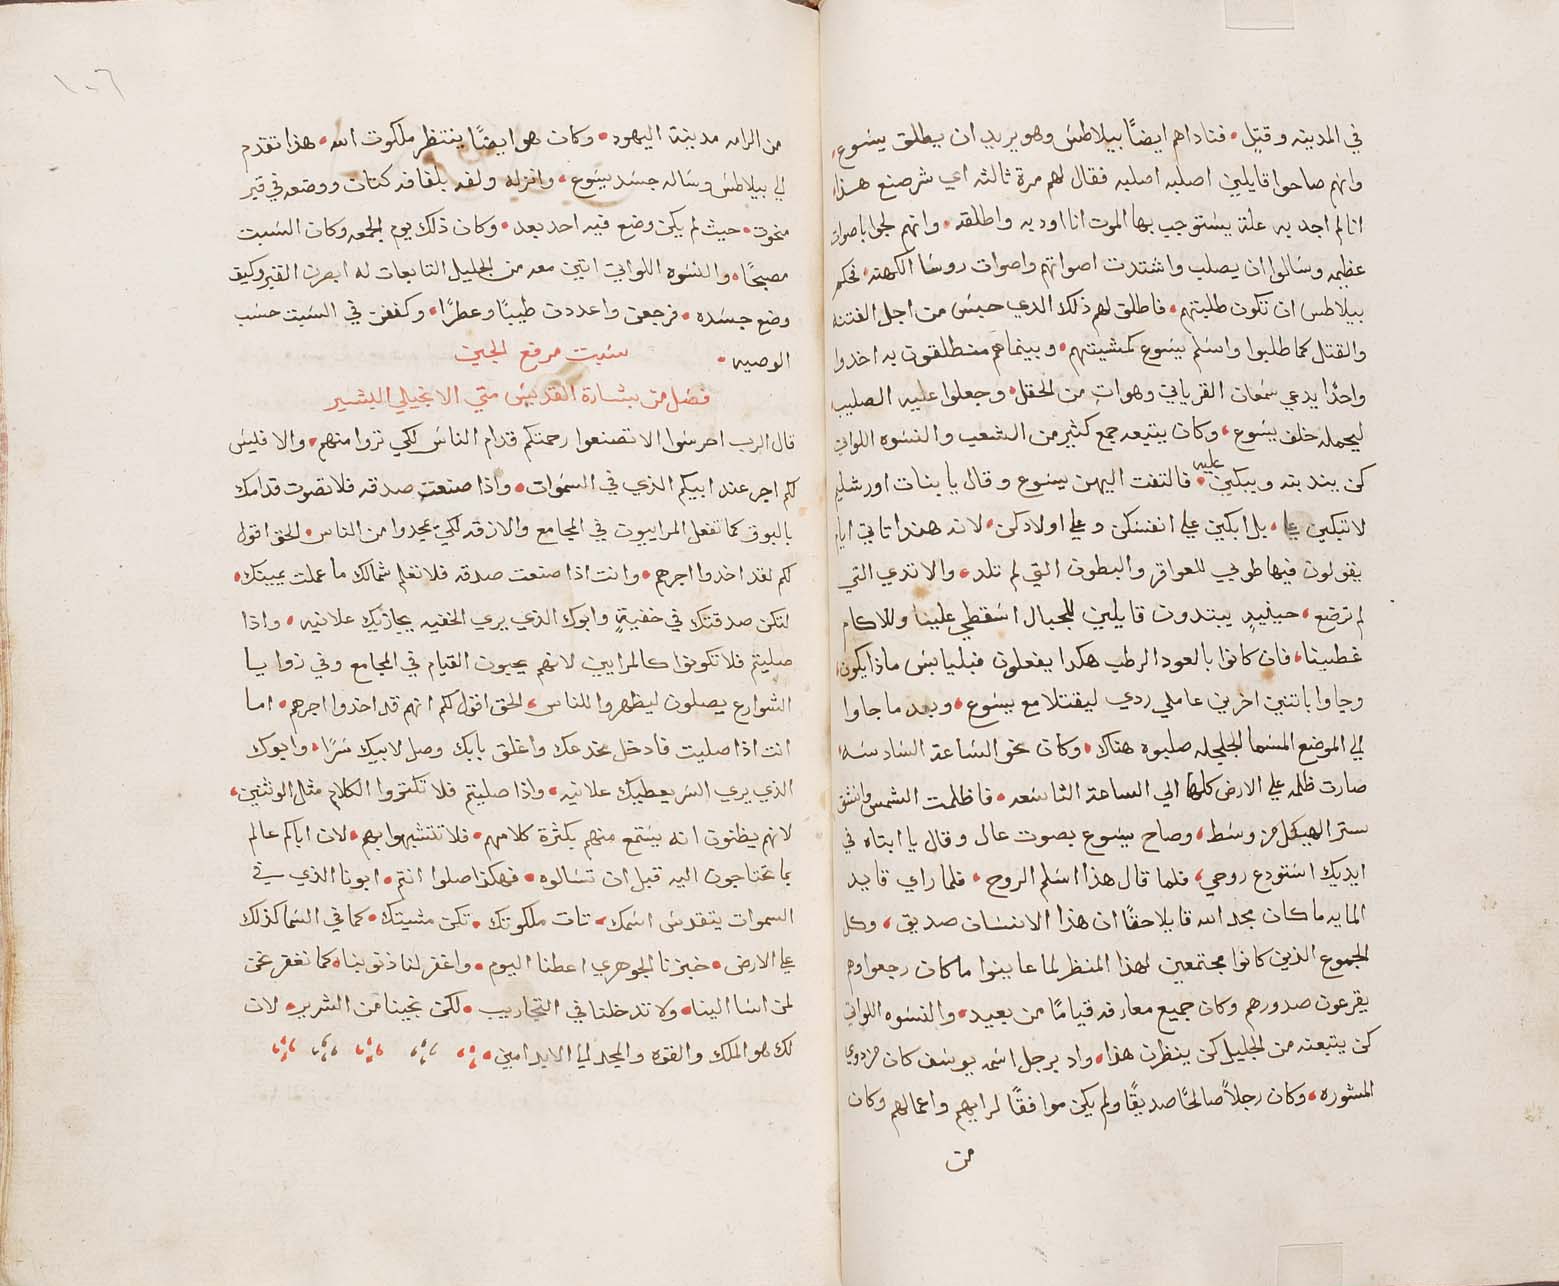 في المدينه وقتل • فناداهم ايضًا بيلاطس وهو يريد ان يطلق يسوع •
وانهم صاحوا قايلين اصلبه اصلبه فقال لهم مرة ثالثه اي شر صنع هذا
انا لم اجد به علة يستوجب بها الموت انا اودبه واطلقه • وانهم لجوا باصوات
عظيمه وسالوا ان يصلب واشتدت اصواتهم واصوات روسا الكهنه • فحكم
بيلاطس ان تكون طلبتهم • فاطلق لهم ذلك الدي حبس من اجل الفتنه
والقتل كما طلبوا واسلم يسوع لمشيتهم • وبينما هم منطلقون به اخدوا
واحدًا يدعي سمعان القرياني وهوات من الحقل • وجعلوا عليه الصليب
ليحمله خلف يسوع • وكان يتبعه جمع كثير من الشعب والنسوه اللواتي
كن يندبنه ويبكين عليه • فالتفت اليهن يسوع وقال يا بنات اورشليم
لا تبكين علي • بل ابكين علي انفسكن وعلي اولادكن • لانه هندا تاتي ايام
يقولون فيها طوبي للعواقر والبطون التي لم تلد • والاتدي التي
لم ترضع • حينيدٍ يبتدون قايلين للجبال اسقطي علينا وللاكام
غطينا • فان كانوا بالعود الرطب هكدا يفعلون فباليابس ماذا يكون •
وجاوا باثنين اخرين عاملي ردي ليقتلا مع يسوع • وبعد ما جاوا
الي الموضع المسما الجلجله صلبوه هناك • وكان نحو الساعة السادسه •
صارت ظلمه علي الارض كلها الي الساعة التاسعه • فاظلمت الشمس وانشق
ستر الهيكل من وسط • وصاح يسوع بصوت عال وقال يا ابتاه في
ايديك استودع روحي • فلما قال هذا اسلم الروح • فلما راي قايد
المايه ما كان مجد الله قايلا حقًا ان هذا الانسان صديق • وكل
الجموع الذين كانوا مجتمعين لهذا المنظر لما عاينوا ما كان رجعوا وهم
يقرعون صدورهم وكان جميع معارفه قيامًا من بعيد • والنسوه اللواتي
كن يتبعنه من الجليل كن ينظرن هذا • واد برجل اسمه يوسف كان من دوي
المشوره • وكان رجلًا صالحًا صديقًا ولم يكن موافقًا لرايهم واعمالهم وكان
من
١٠٦
من الرامه مدينة اليهود • وكان هو ايضًا ينتظر ملكوت الله • هذا تقدم
الي بيلاطس وساله جسد يسوع • وانزله ولفه بلفافه كتان ووضعه في قبر
منحوت • حيث لم يكن وضع فيه احد بعد • وكان ذلك يوم الجمعه وكان السبت
مصبحًا • والنسوه اللواتي اتين معه من الجليل التابعات له ابصرن القبر وكيف
وضع جسده • فرجعن واعددت طيبًا وعطرًا • وكففن في السبت حسب
الوصيه • سبت مرفع الجبن
فصل من بشارة القديس متي الانجيلي البشير
قال الرب احرسوا الا تصنعوا رحمتكم قدام الناس لكي تروا منهم • والا فليس
لكم اجر عند ابيكم الذي في السموات • واذا صنعت صدقه فلا تصوت قدامك
بالبوق كما تفعل المراييون في المجامع والازقه لكي يمجدوا من الناس • الحق اقول
لكم لقد اخدوا اجرهم • وانت اذا صنعت صدقه فلا تعلم شمالك ما عملت يمينك •
لتكن صدقتك في خفيةٍ وابوك الذي يري الخفيه يجازيك علانيه • واذا
صليتم فلا تكونوا كالمرايين لانهم يحبون القيام في المجامع وفي زوايا
الشوارع يصلون ليظهروا للناس • الحق اقول لكم انهم قد اخذوا اجرهم • اما
انت اذا صليت فادخل مخدعك واغلق بابك وصل لابيك سرًا • وابوك
الذي يري السر يعطيك علانيه • واذا صليتم فلا تكثروا الكلام مثل الوثنيين •
لانهم يظنون انه يستمع منهم بكثرة كلامهم • فلا تتشبهوا بهم • لان اباكم عالم
بما تحتاجون اليه قبل ان تسالوه • فهكذا صلوا انتم • ابونا الذي في
السموات يتقدس اسمك • تات ملكوتك • تكن مشيتك • كما في السما كذلك
علي الارض • خبزنا الجوهري اعطنا اليوم • واغفر لنا ذنوبنا • كما نغفر نحن
لمن اسا الينا • ولا تدخلنا في التجاريب • لكن نجينا من الشرير • لان
لك هو الملك والقوه والمجد الي الابد امين •